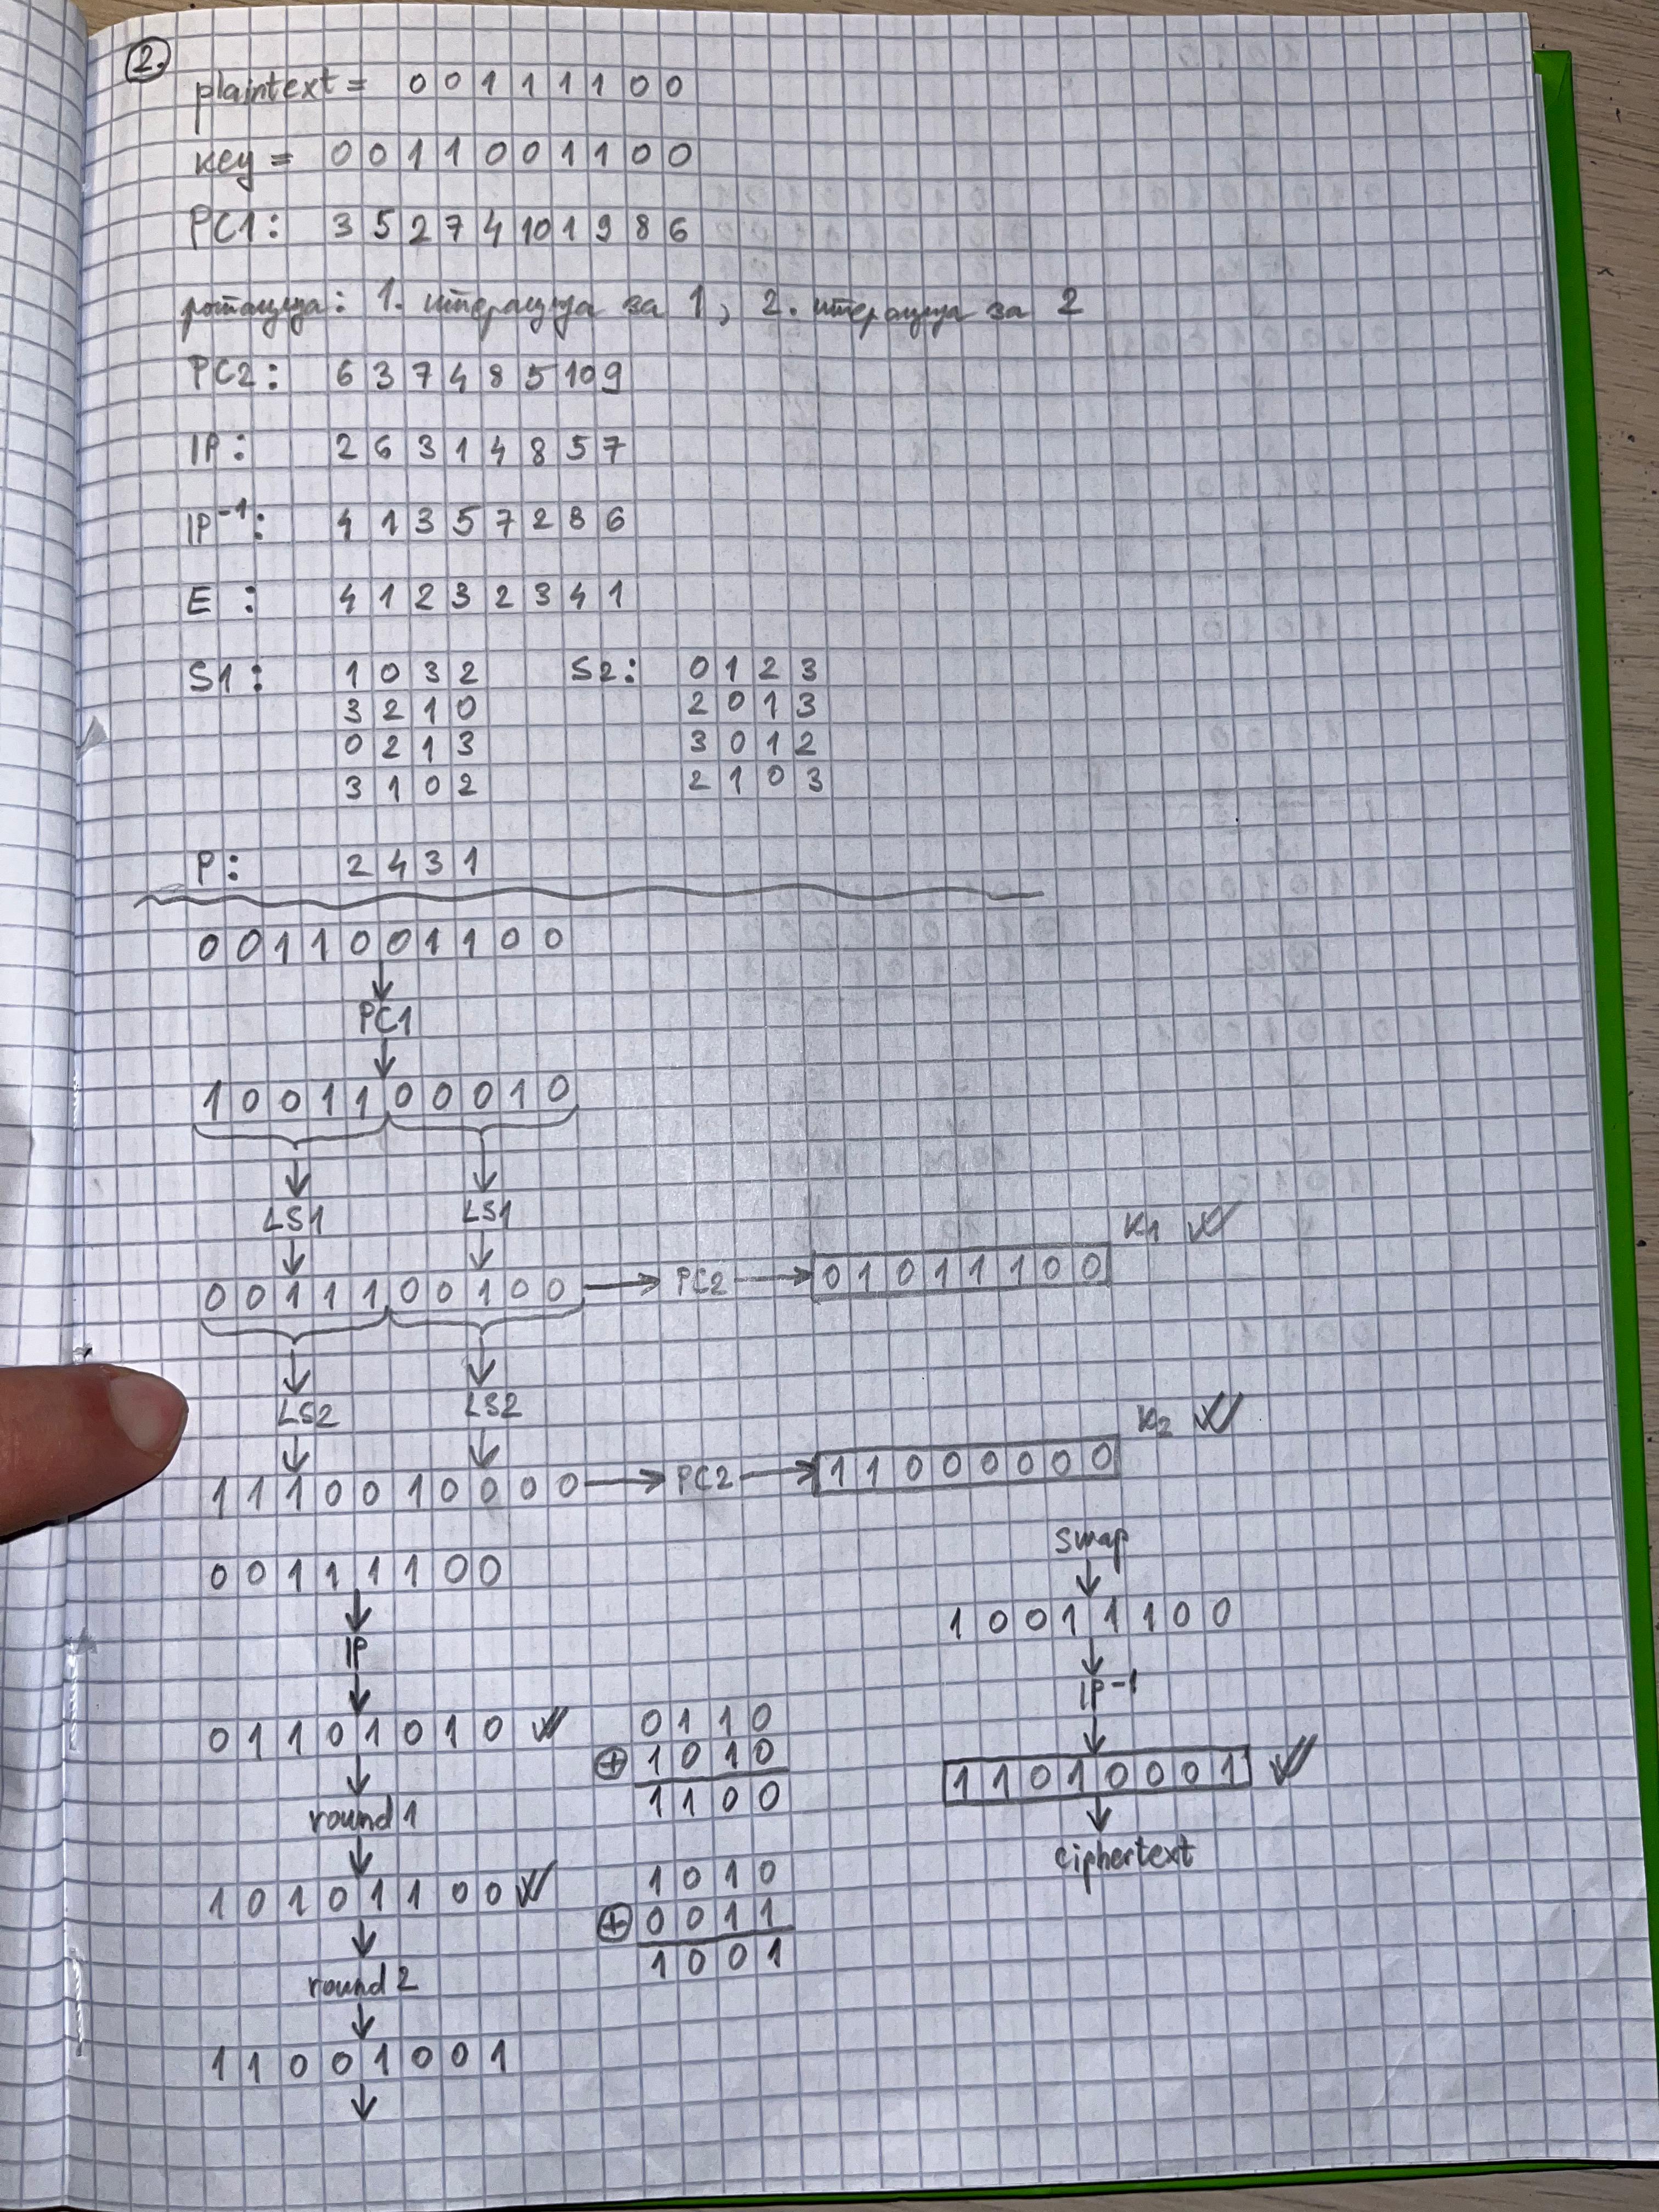 2.
plaintext = 0 0 1 1 1 1 0 0
key = 0 0 1 1 0 0 1 1 0 0
PC1: 3 5 2 7 4 10 1 9 8 6
ротација: 1. итерација за 1, 2. итерација за 2
PC2: 6 3 7 4 8 5 10 9
IP: 2 6 3 1 4 8 5 7
IP-1: 4 1 3 5 7 2 8 6
E : 4 1 2 3 2 3 4 1
S1: 1 0 3 2 S2: 0 1 2 3
3 2 1 0 2 0 1 3
0 2 1 3 3 0 1 2
3 1 0 2 2 1 0 3
P: 2 4 3 1
0 0 1 1 0 0 1 1 0 0
PC1
1 0 0 1 1 0 0 0 1 0
LS1 LS1
K1
0 0 1 1 1 0 0 1 0 0 → PC2 → 0 1 0 1 1 1 0 0
LS2 LS2
K2
1 1 1 0 0 1 0 0 0 0 → PC2 → 1 1 0 0 0 0 0 0
0 0 1 1 1 1 0 0
IP
0 1 1 0 1 0 1 0
round 1
1 0 1 0 1 1 0 0
round 2
1 1 0 0 1 0 0 1
0 1 1 0
⊕ 1 0 1 0
1 1 0 0
1 0 1 0
⊕ 0 0 1 1
1 0 0 1
swap
1 0 0 1 1 1 0 0
IP-1
1 1 0 1 0 0 0 1
ciphertext